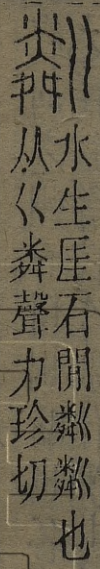 粼
水生厓石閒粼粼也
从巜粦聲力珍切